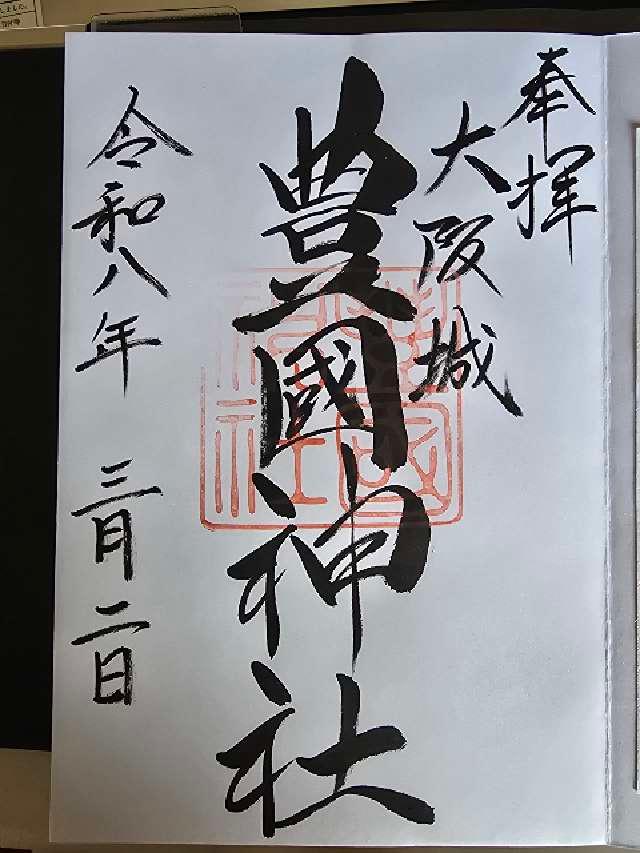 奉拝
大阪城
豊國神社
令和八年 三月二日